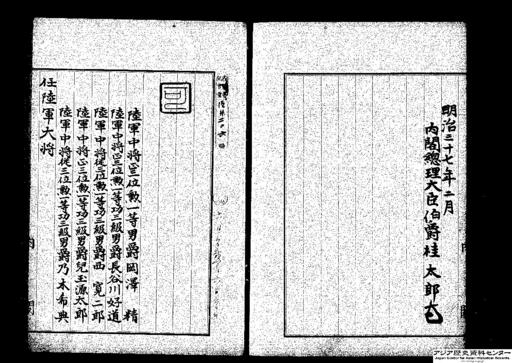 明治三十七年二月
内閣總理大臣伯爵桂太郎
陸軍中將正三位勲一等男爵岡澤精
陸軍中將正三位勲一等功三級男爵長谷川好道
陸軍中將正三位勲一等功三級男爵西寛二郎
陸軍中將正三位勲一等功三級男爵兒玉源太郎
陸軍中將從三位勲一等功三級男爵乃木希典
任陸軍大将
内閣
アジア歴史資料センター
Japan Center for Asian Historical Records